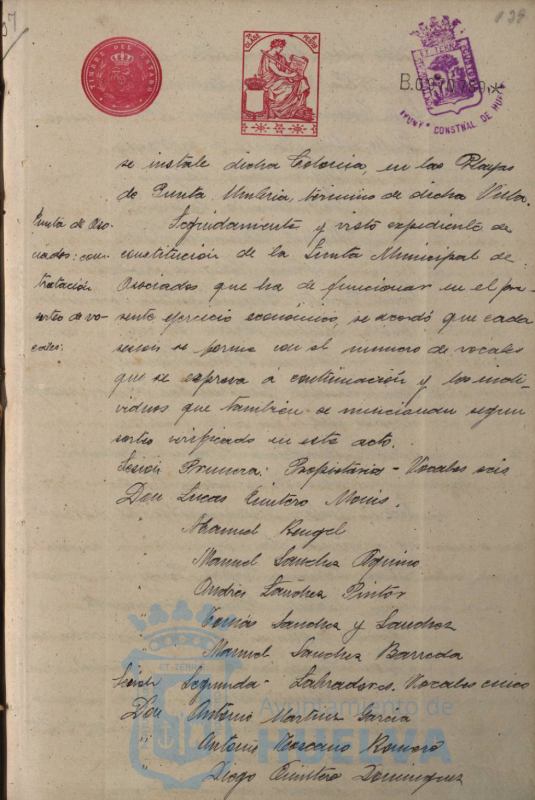 07
139
TIMBRE DEL ESTADO
CLASE
B.0.970.789,*
AYUNTº CONSTNAL DE HUELVA
se instale dicha Colonia, en las Playas
de Punta Umbria, término de dicha Villa.
Junta de Aso-
ciados: cons-
titución
sorteo de vo-
cales:
Seguidamente y visto expediente de
constitución de la Junta Municipal de
Asociados que ha de funcionar en el pre-
sente ejercicio económico, se acordó que cada
sesion se forme con el numero de vocales
que se expresa á continuación y los indi-
viduos que también se mencionan segun
sorteo verificado en este acto.
Sesión Primera: Propietarios - Vocales seis
Don Lucas Quintero Monis.
Manuel Rengel
Manuel Sanchez Aquino
Andrés Sanchez Pintor
" Tomás Sanchez y Sanchez
Manuel Sanchez Barreda
Sesión Segunda - Labradores. Vocales cinco
Don Antonio Martinez Garcia
" Antonio Moscano Romero
" Diego Quintero Dominguez
ET TERRÆ
Ayuntamiento de
HUELVA